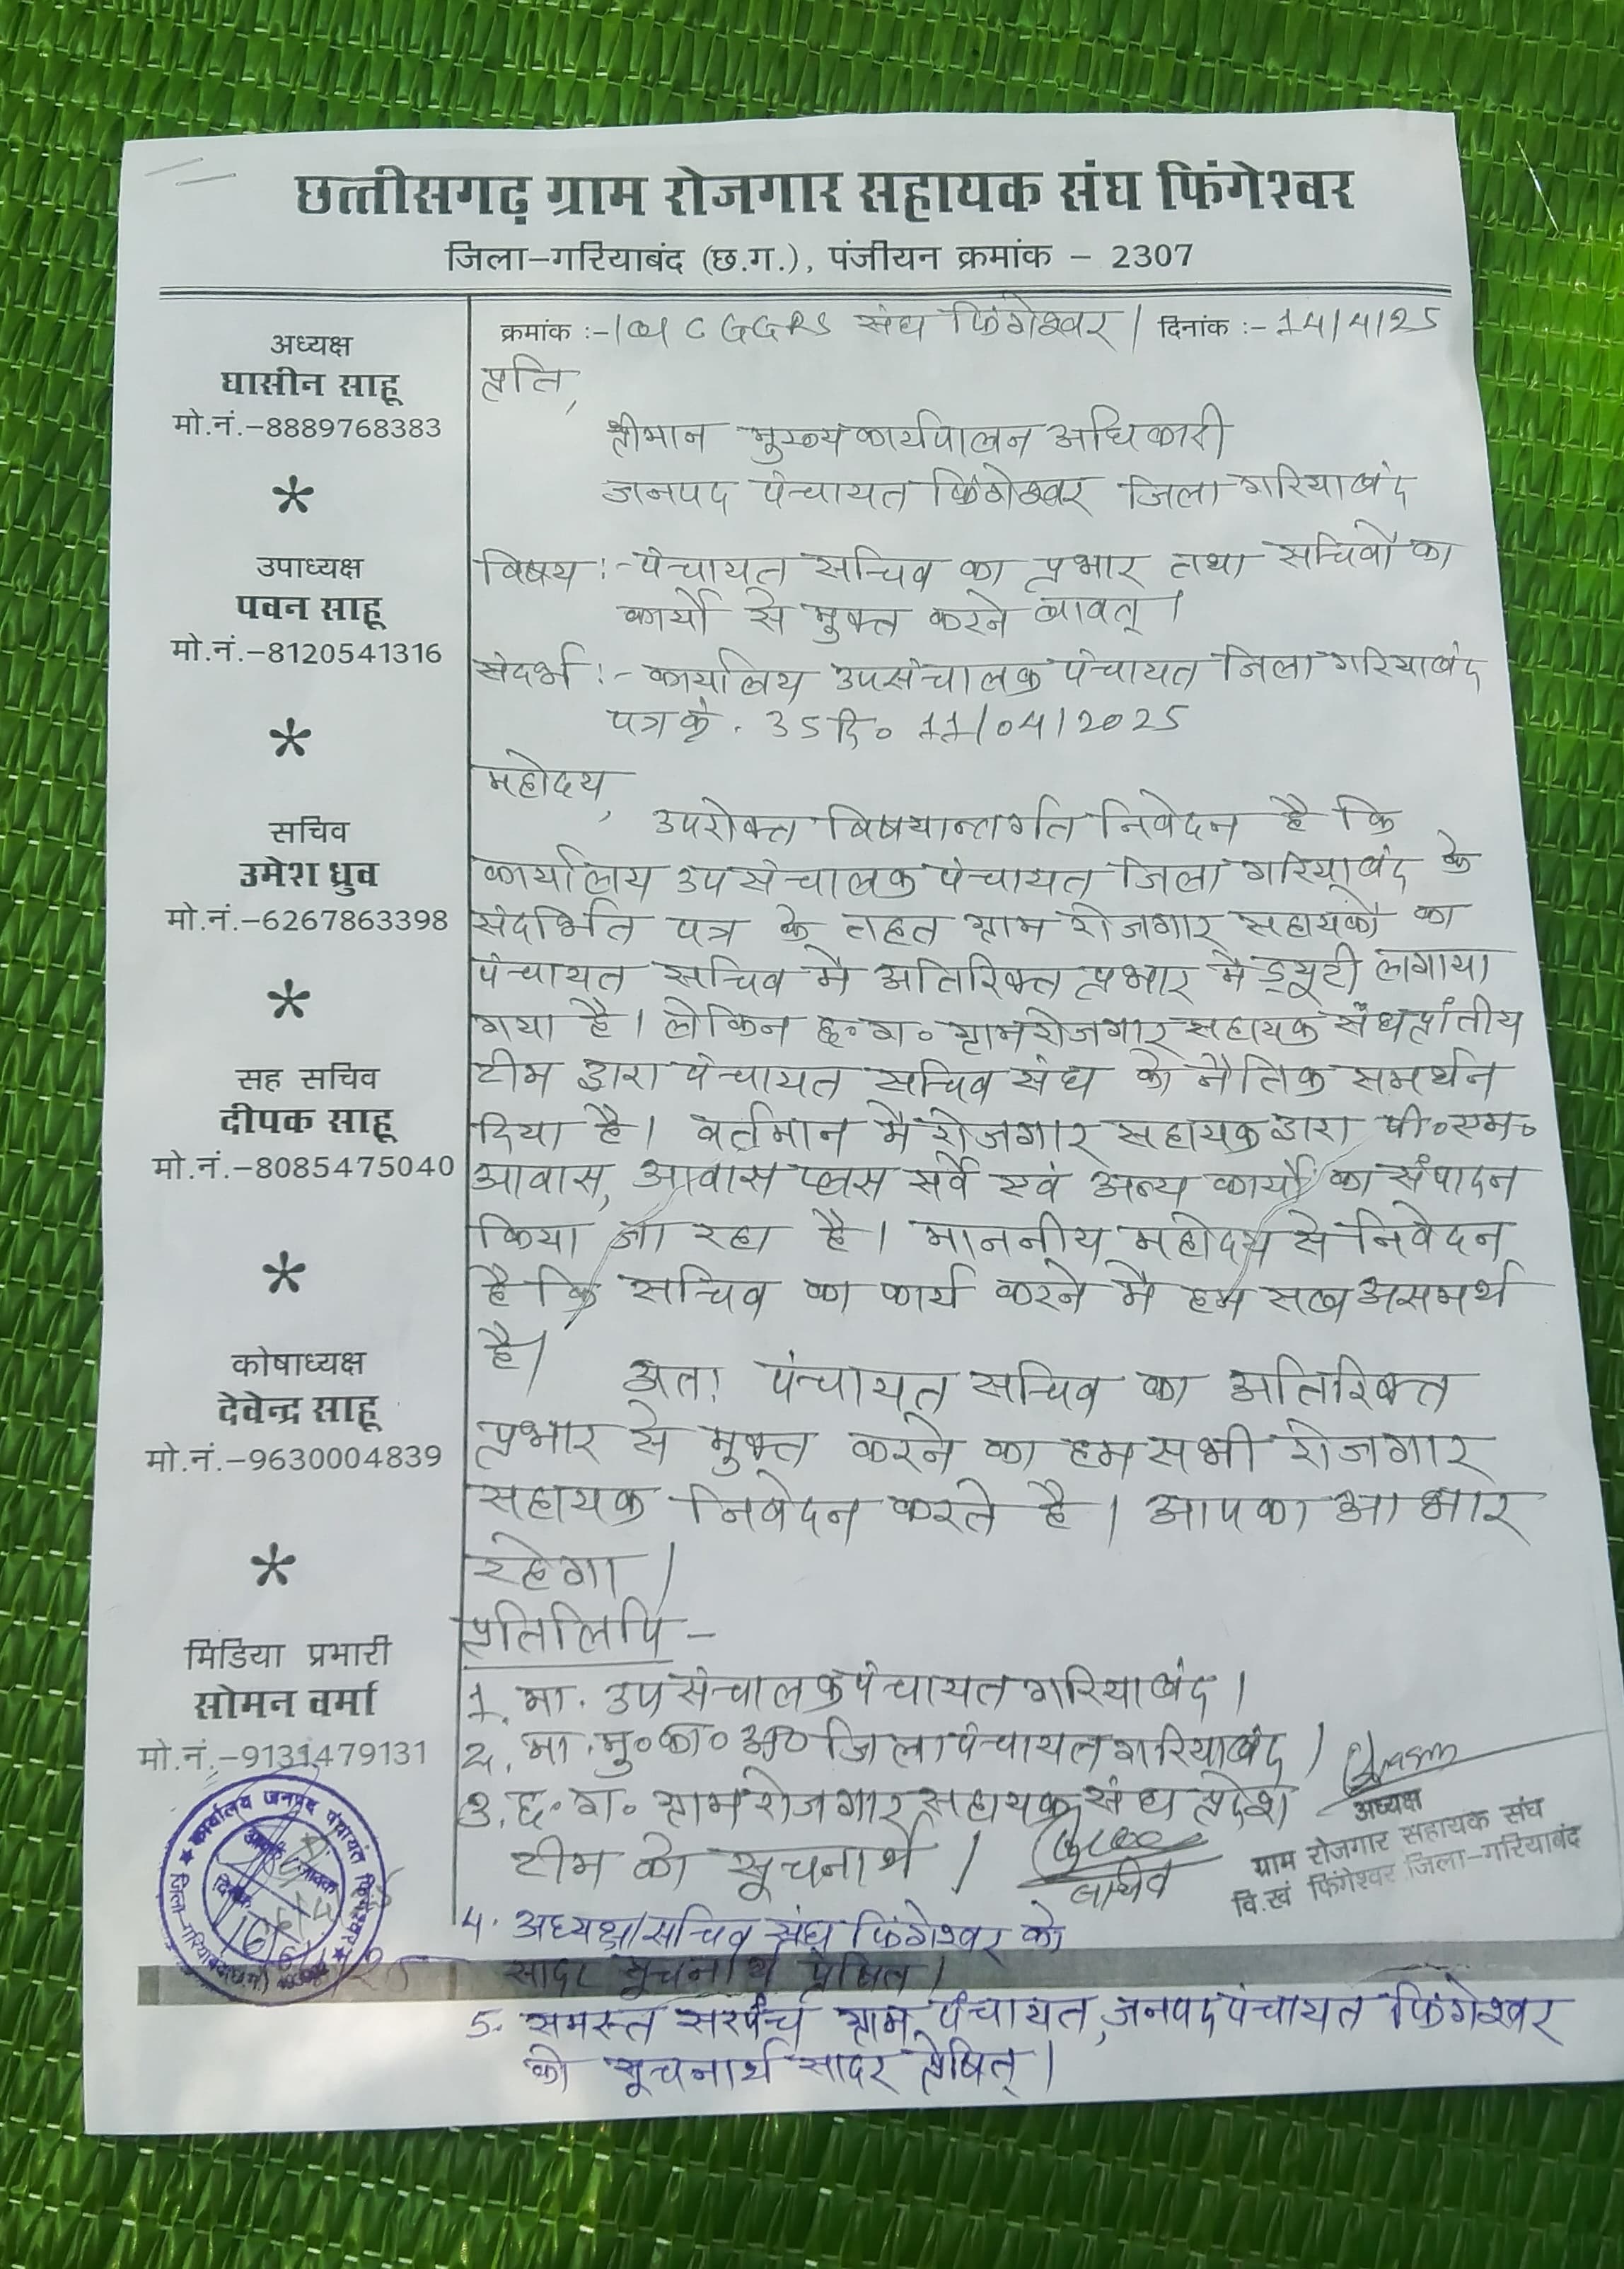 छत्तीसगढ़ ग्राम रोजगार सहायक संघ फिंगेश्वर
जिला–गरियाबंद (छ.ग.), पंजीयन क्रमांक – 2307
अध्यक्ष
घासीन साहू
मो.नं.–8889768383
*
उपाध्यक्ष
पवन साहू
मो.नं.–8120541316
*
सचिव
उमेश ध्रुव
मो.नं.–6267863398
*
सह सचिव
दीपक साहू
मो.नं.–8085475040
*
कोषाध्यक्ष
देवेन्द्र साहू
मो.नं.–9630004839
*
मिडिया प्रभारी
सोमन वर्मा
मो.नं.–9131479131
क्रमांक :– CGGRS संघ फिंगेश्वर / दिनांक :– 14/4/25
प्रति,
श्रीमान मुख्य कार्यपालन अधिकारी
जनपद पंचायत फिंगेश्वर जिला गरियाबंद
विषय :- पंचायत सचिव का प्रभार तथा सचिवों का
कार्यों से मुक्त करने बावत् ।
संदर्भ :- कार्यालय उपसंचालक पंचायत जिला गरियाबंद
पत्र क्रं. 35 दि० 11/04/2025
महोदय,
उपरोक्त विषयान्तर्गत निवेदन है कि
कार्यालाय उपसंचालक पंचायत जिला गरियाबंद के
संदर्भित पत्र के तहत ग्राम रोजगार सहायकों का
पंचायत सचिव मे अतिरिक्त प्रभार मे ड्यूटी लगाया
गया है । लेकिन छ०ग० ग्राम रोजगार सहायक संघ प्रांतीय
टीम द्वारा पंचायत सचिव संघ को नैतिक समर्थन
दिया है । वर्तमान मे रोजगार सहायक द्वारा पी०एम०
आवास, आवास प्लस सर्वे एवं अन्य कार्यों का संपादन
किया जा रहा है । माननीय महोदय से निवेदन
है कि सचिव का कार्य करने मे हम सब असमर्थ
है ।
अतः पंचायत सचिव का अतिरिक्त
प्रभार से मुक्त करने का हम सभी रोजगार
सहायक निवेदन करते है । आपका आभार
रहेगा ।
प्रतिलिपि –
1. मा. उपसंचालक पंचायत गरियाबंद ।
2. मा. मु०का०अ० जिला पंचायत गरियाबंद ।
3. छ.ग. ग्राम रोजगार सहायक संघ प्रदेश
टीम को सूचनार्थ ।
सचिव
अध्यक्ष
ग्राम रोजगार सहायक संघ
वि.खं फिंगेश्वर जिला–गरियाबंद
4. अध्यक्ष/सचिव संघ फिंगेश्वर को
सादर सूचनार्थ प्रेषित ।
5. समस्त सरपंच ग्राम पंचायत, जनपद पंचायत फिंगेश्वर
को सूचनार्थ सादर प्रेषित् ।
कार्यालय जनपद पंचायत फिंगेश्वर
जिला–गरियाबंद (छ.ग.)
आवक